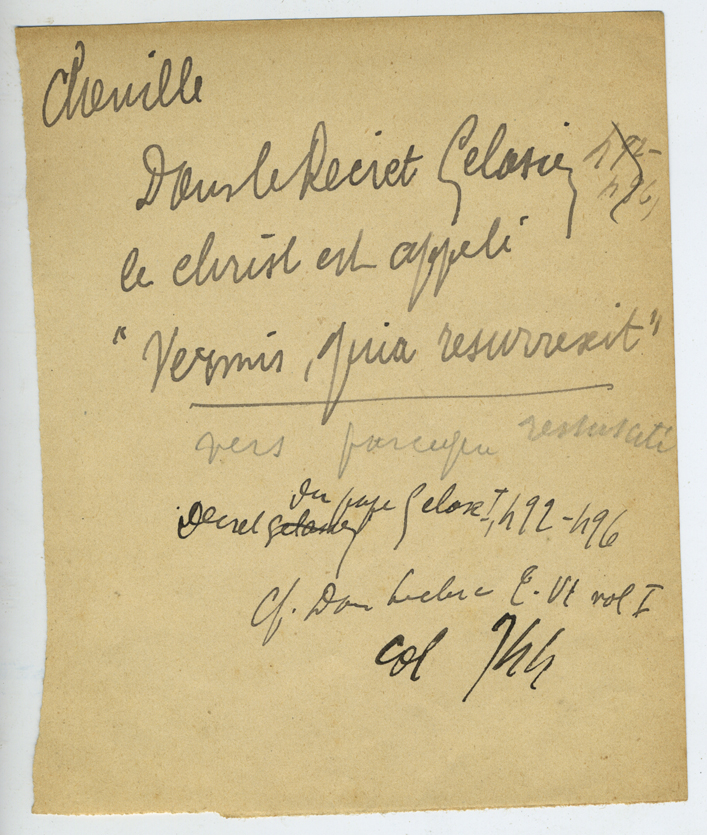 Chenille
Dans le Décret Gelasien 492-
496,
le christ est appelé
"Vermis, quia resurrexit"
vers parceque ressuscité
du pape Gelase I, 492-496
Decret Gelasien
Cf. Dom Leclerc E. Vt vol I
col 744